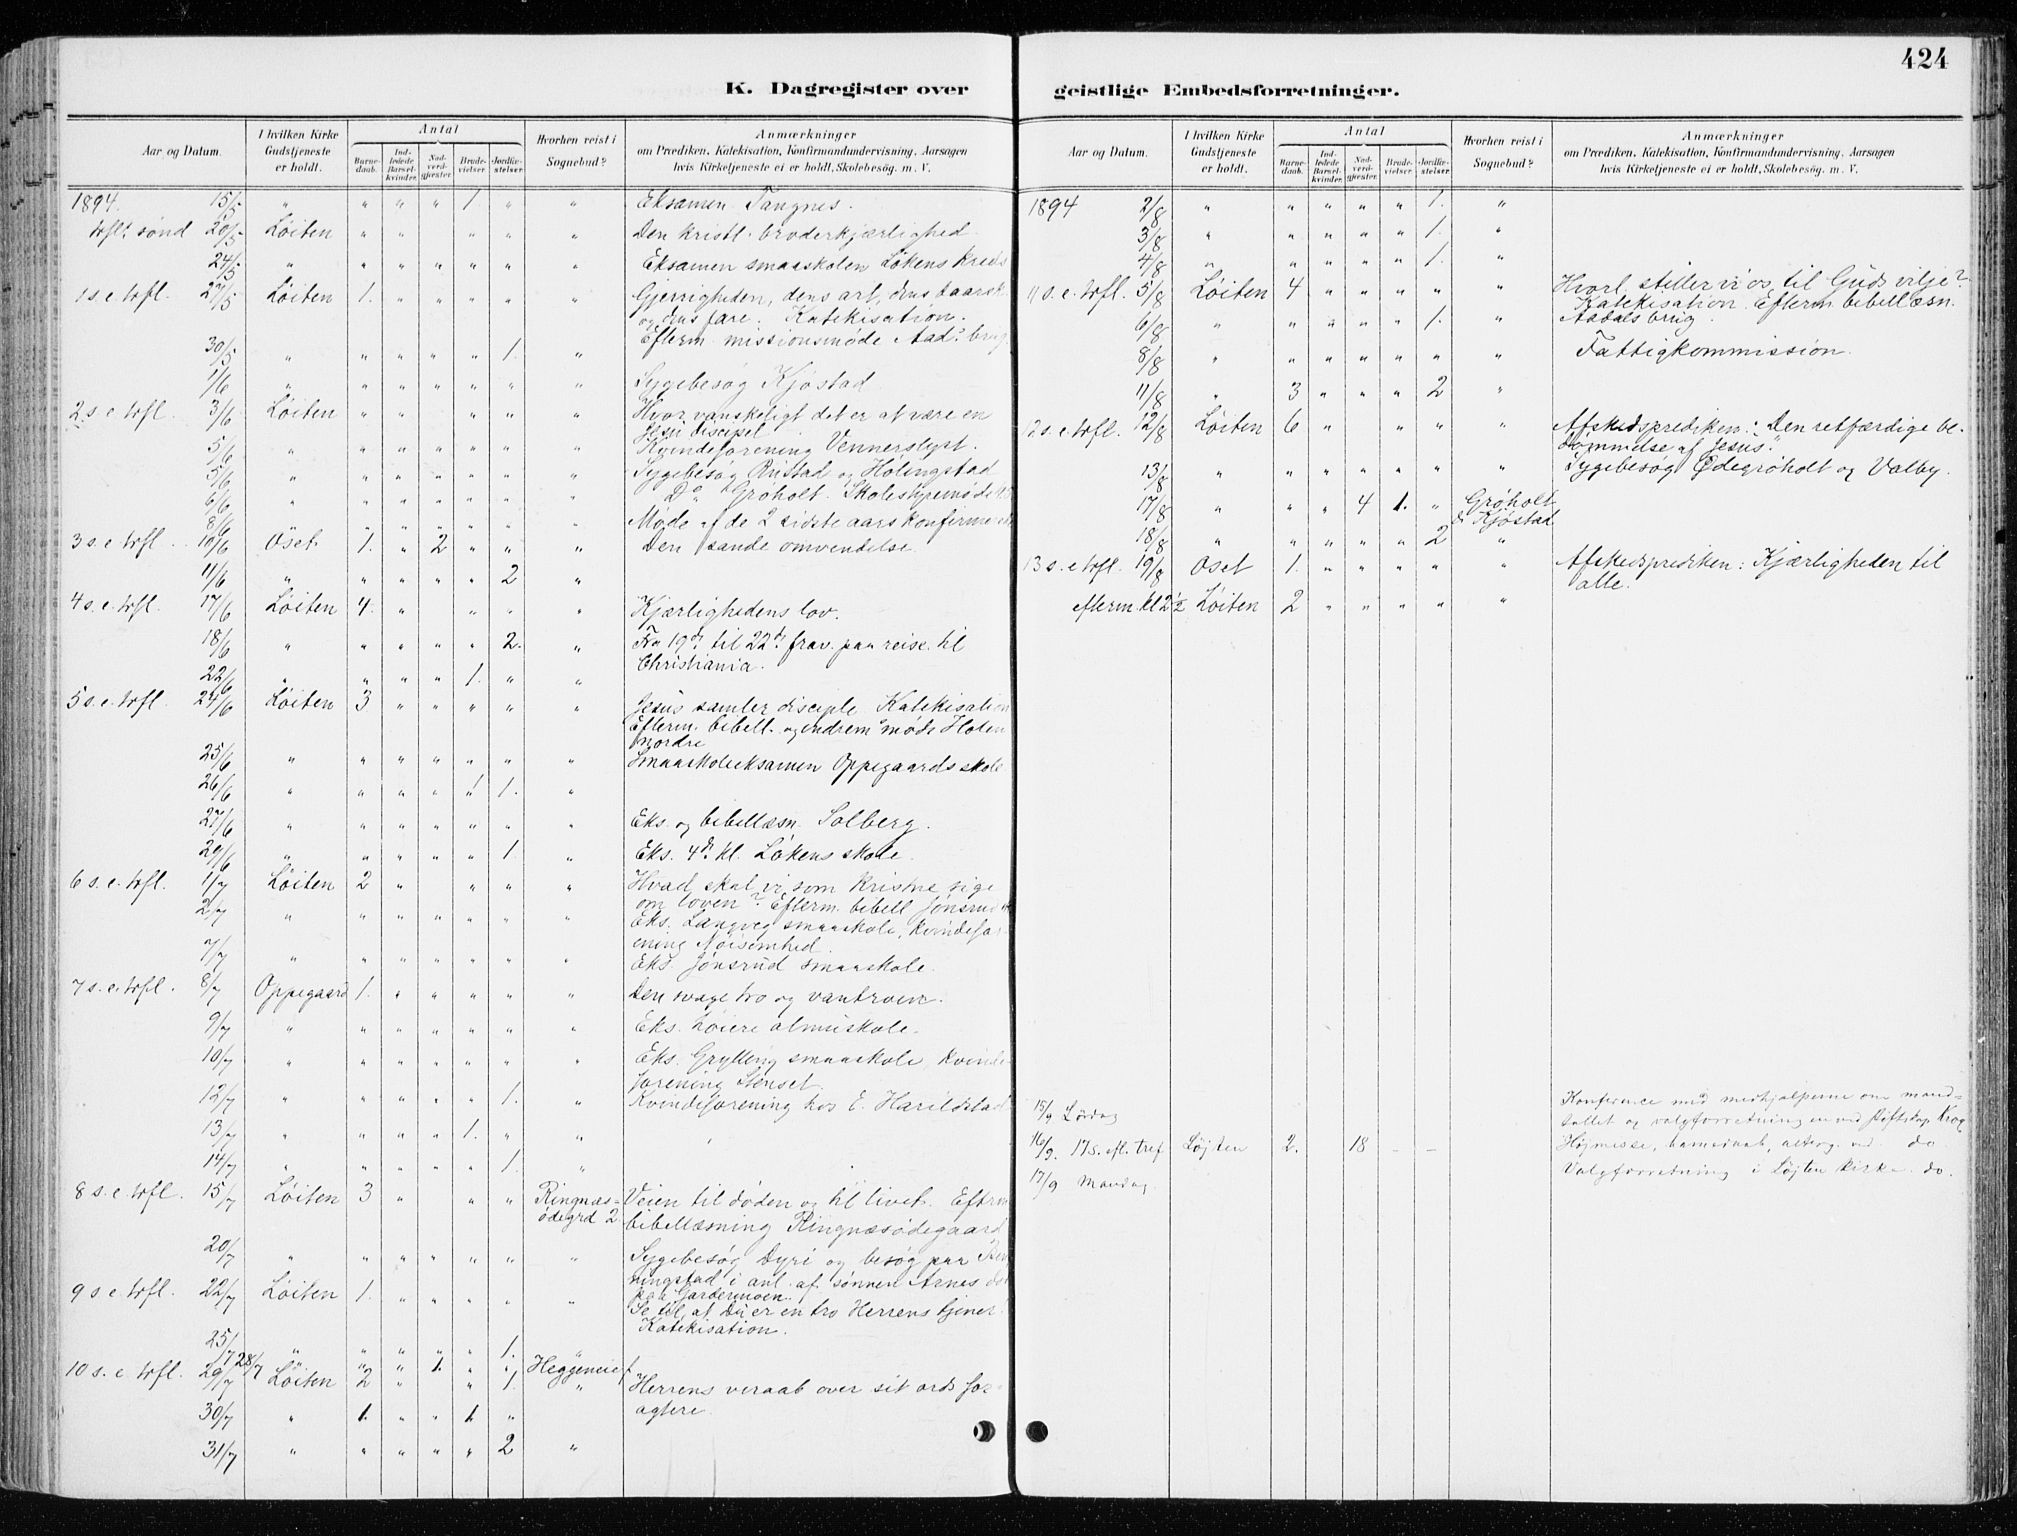 424
K. Dagregister over geistlige Embedsforretninger.
Aar og Datum. I hvilken Kirke Gudstjeneste er holdt. Antal Barne-daab. Ind-ledede Barsel-kvinder. Nad-verd-gjæster. Brude-vielser. Jordfæ-stelser. Hvorhen reist i Sognebud? Anmærkninger om Prædiken, Katekisation, Konfirmandundervisning, Aarsagen hvis Kirketjeneste ei er holdt, Skolebesøg. m. V.
1894. 15/5 " " " " 1. " " Eksamen Tangnes.
trflt sønd 20/5 Løiten " " " " " Den kristl. broderkjærlighed.
24/5 " " " " " " " Eksamen smaaskolen Løkens kreds
1 s. e. trfl. 27/5 Løiten 1. " " " " " Gjerrigheden, dens art, dens daarsk.
og dens fare. Katekisation.
Efterm. missionsmøde Aad. brug
30/5 " " " " " 1. "
1/6 " " " " " " " Sygebesøg Kjøstad
2 s. e. trfl. 3/6 Løiten " " " " " Hvor vanskeligt det er at være en
Jesu discipel
5/6 " " " " " " " Kvindeforening Vennerslyst.
5/6 " " " " " " " Sygebesøg Rustad og Hølingstad
6/6 " " " " " " " Do Grøholt. Skolestyremøde
8/6 " " " " " " Møde af de 2 sidste aars konfirmerede
3 s. e. trfl. 10/6 Oset 1. " 2 " " " Den sande omvendelse.
11/6 " " " " " 2 "
4 s. e. trfl. 17/6 Løiten 4. " " " " Kjærlighedens lov.
18/6 " " " " " 2. " Fra 19de til 22de frav. paa reise til
Christiania.
22/6 " " " " 1. " "
5 s. e. trfl. 24/6 Løiten 3 " " " " " Jesus samler disciple. Katekisation
Efterm. bibell. og indrem. møde Hoten
nordre
25/6 " " " " " " " Smaaskoleeksamen Oppegaards skole
26/6 " " " " " 1. "
27/6 " " " " " " " Eks. og bibellæsn. Solberg.
29/6 " " " " " 1. " Eks. 4de kl. Løkens skole.
6 s. e. trfl. 1/7 Løiten 2 " " " " Hvad skal vi som kristne sige
om loven? Efterm. bibell Jønsrud
2/7 " " " " " " " Eks. Langveg smaaskole, kvindefor-
ening Nøisomhed.
7/7 " " " " " " " Eks. Jønsrud smaaskole.
7 s. e. trfl. 8/7 Oppegaard 1. " " " " " Den svage tro og vantroen.
9/7 " " " " " " " Eks. Løiere almuskole.
10/7 " " " " " " " Eks. Grylling smaaskole, kvinde-
forening Stenset.
12/7 " " " " " 1. " Kvindeforening hos E. Harildstad
13/7 " " " " 1. " "
14/7 " " " " " 1. "
8 s. e. trfl. 15/7 Løiten 3 " " " Ringnæs- ødegrd 2 Veien til døden og til livet. Efterm
bibellæsning Ringnæsødegaard
20/7 " " " " " " " Sygebesøg Dyri og besøg paa
ningstad i anl. af sønnen Arnes død
paa Gardermoen.
9 s e trfl. 22/7 Løiten 1. " " " " " Se til, at Du er en tro Herrens tjener
Katekisation.
25/7 " " " " " 1. "
28/7 " " " 1. " " Heggeneie
10 s. e trfl. 29/7 Løiten 2 " " 1. " Herrens veraab over sit ords for-
agtere.
30/7 " 1. " " 1. "
31/7 " " " " " 2 "
Aar og Datum. I hvilken Kirke Gudstjeneste er holdt. Antal Barne-daab. Ind-ledede Barsel-kvinder. Nad-verd-gjæster. Brude-vielser. Jordfæ-stelser. Hvorhen reist i Sognebud? Anmærkninger om Prædiken, Katekisation, Konfirmandundervisning, Aarsagen hvis Kirketjeneste ei er holdt, Skolebesøg. m. V.
1894 2/8 " " " " " 1. "
3/8 " " " " " 1. "
4/8 " " " " " 1. "
11 s. e. trfl. 5/8 Løiten 4 " " " " " Hvorl. stiller vi os til Guds vilje?
Katekisation. Efterm bibellæsn.
6/8 " " " " " 1. " Aadals brug.
8/8 " " " " " " " Fattigkommission.
11/8 " 3 " " " 2 "
12 s. e. trfl. 12/8 Løiten 6 " " " " " Afskedsprediken: "Den retfærdige be-
dømmelse af Jesus".
13/8 " " " " " " " Sygebesøg Ødegrøholt og Valby.
17/8 " " " 4 1. " Grøholt
& Kjøstad
18/8 " " " " " 2 "
13 s. e trfl. 19/8 Oset 1. " " " " " Afskedsprediken: Kjærligheden til
alle.
efterm. kl 2 1/2 Løiten 2 " " " " "
15/9 Lørdag Konference med medhjælperne om mand-
tallet og valgforretningen ved Stiftskap Krog
16/9. 17 s. eft. tref Løjten 2. 18 - - Højmesse, barnedaab, alterg. ved do
17/9 Mandag. Valgforretning i Løjten kirke. do.